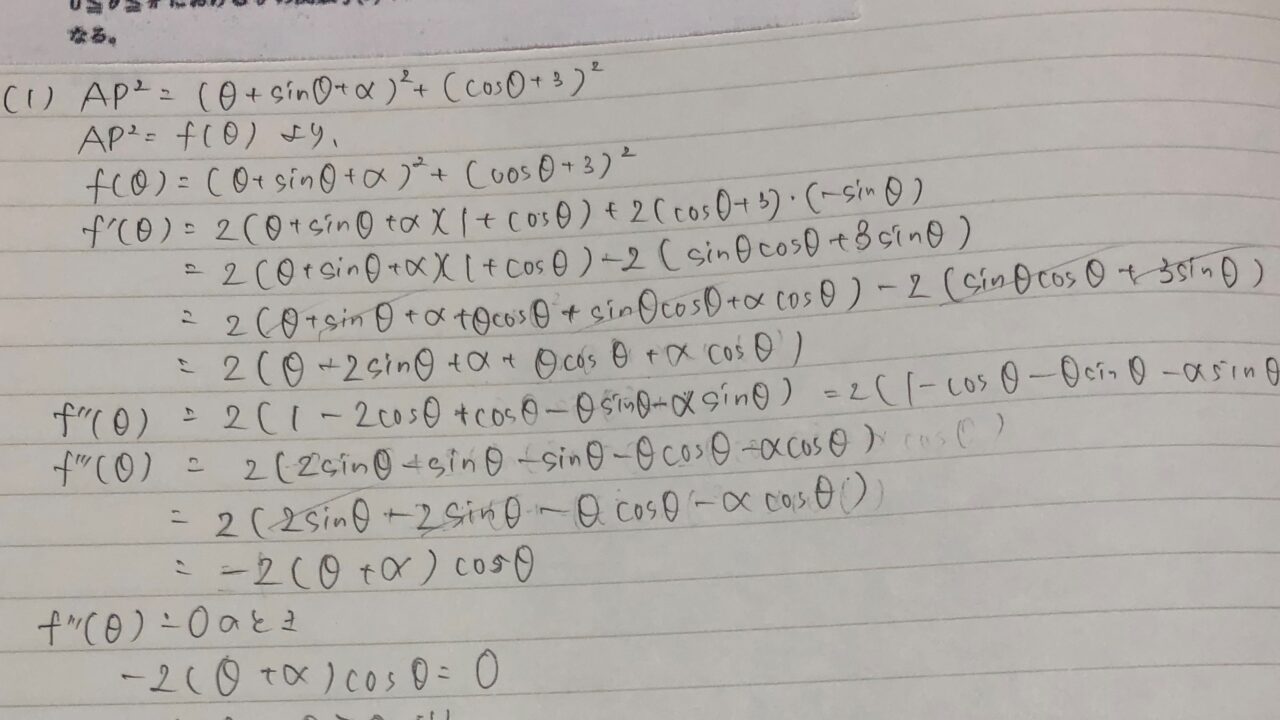 なる。
(1) AP² = (θ+sinθ+α)²+ (cosθ+3)²
AP²= f(θ) より、
f(θ) = (θ+sinθ+α)²+ (cosθ+3)²
f'(θ) = 2(θ+sinθ+α)(1+cosθ) + 2(cosθ+3)・(-sinθ)
= 2(θ+sinθ+α)(1+cosθ) - 2(sinθcosθ+3sinθ)
= 2(θ+sinθ+α+θcosθ+sinθcosθ+αcosθ) - 2(sinθcosθ+3sinθ)
= 2(θ-2sinθ+α+θcosθ+αcosθ)
f''(θ) = 2(1-2cosθ+cosθ-θsinθ-αsinθ) = 2(1-cosθ-θsinθ-αsinθ
f'''(θ) = 2(2sinθ-sinθ-sinθ-θcosθ-αcosθ)
= 2(2sinθ-2sinθ-θcosθ-αcosθ)
= -2(θ+α)cosθ
f'''(θ)=0のとき
-2(θ+α)cosθ=0